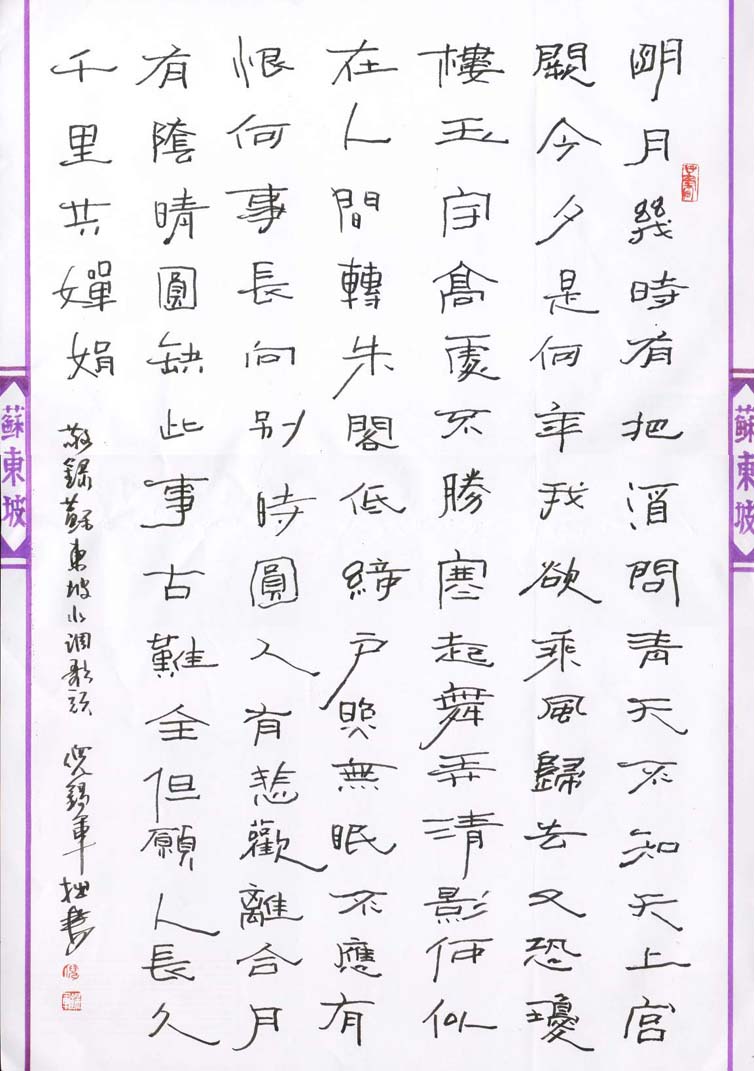 明月幾時有把酒問青天不知天上宮
闕今夕是何年我欲乘風歸去又恐瓊
樓玉宇高處不勝寒起舞弄清影何似
在人間轉朱閣低綺戶照無眠不應有
恨何事長向別時圓人有悲歡離合月
有陰晴圓缺此事古難全但願人長久
千里共嬋娟
敬錄蘇東坡水調歌頭 倪錫軍拙書
蘇東坡
蘇東坡